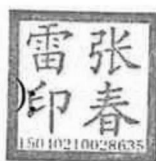 张春
雷印
15040210028635